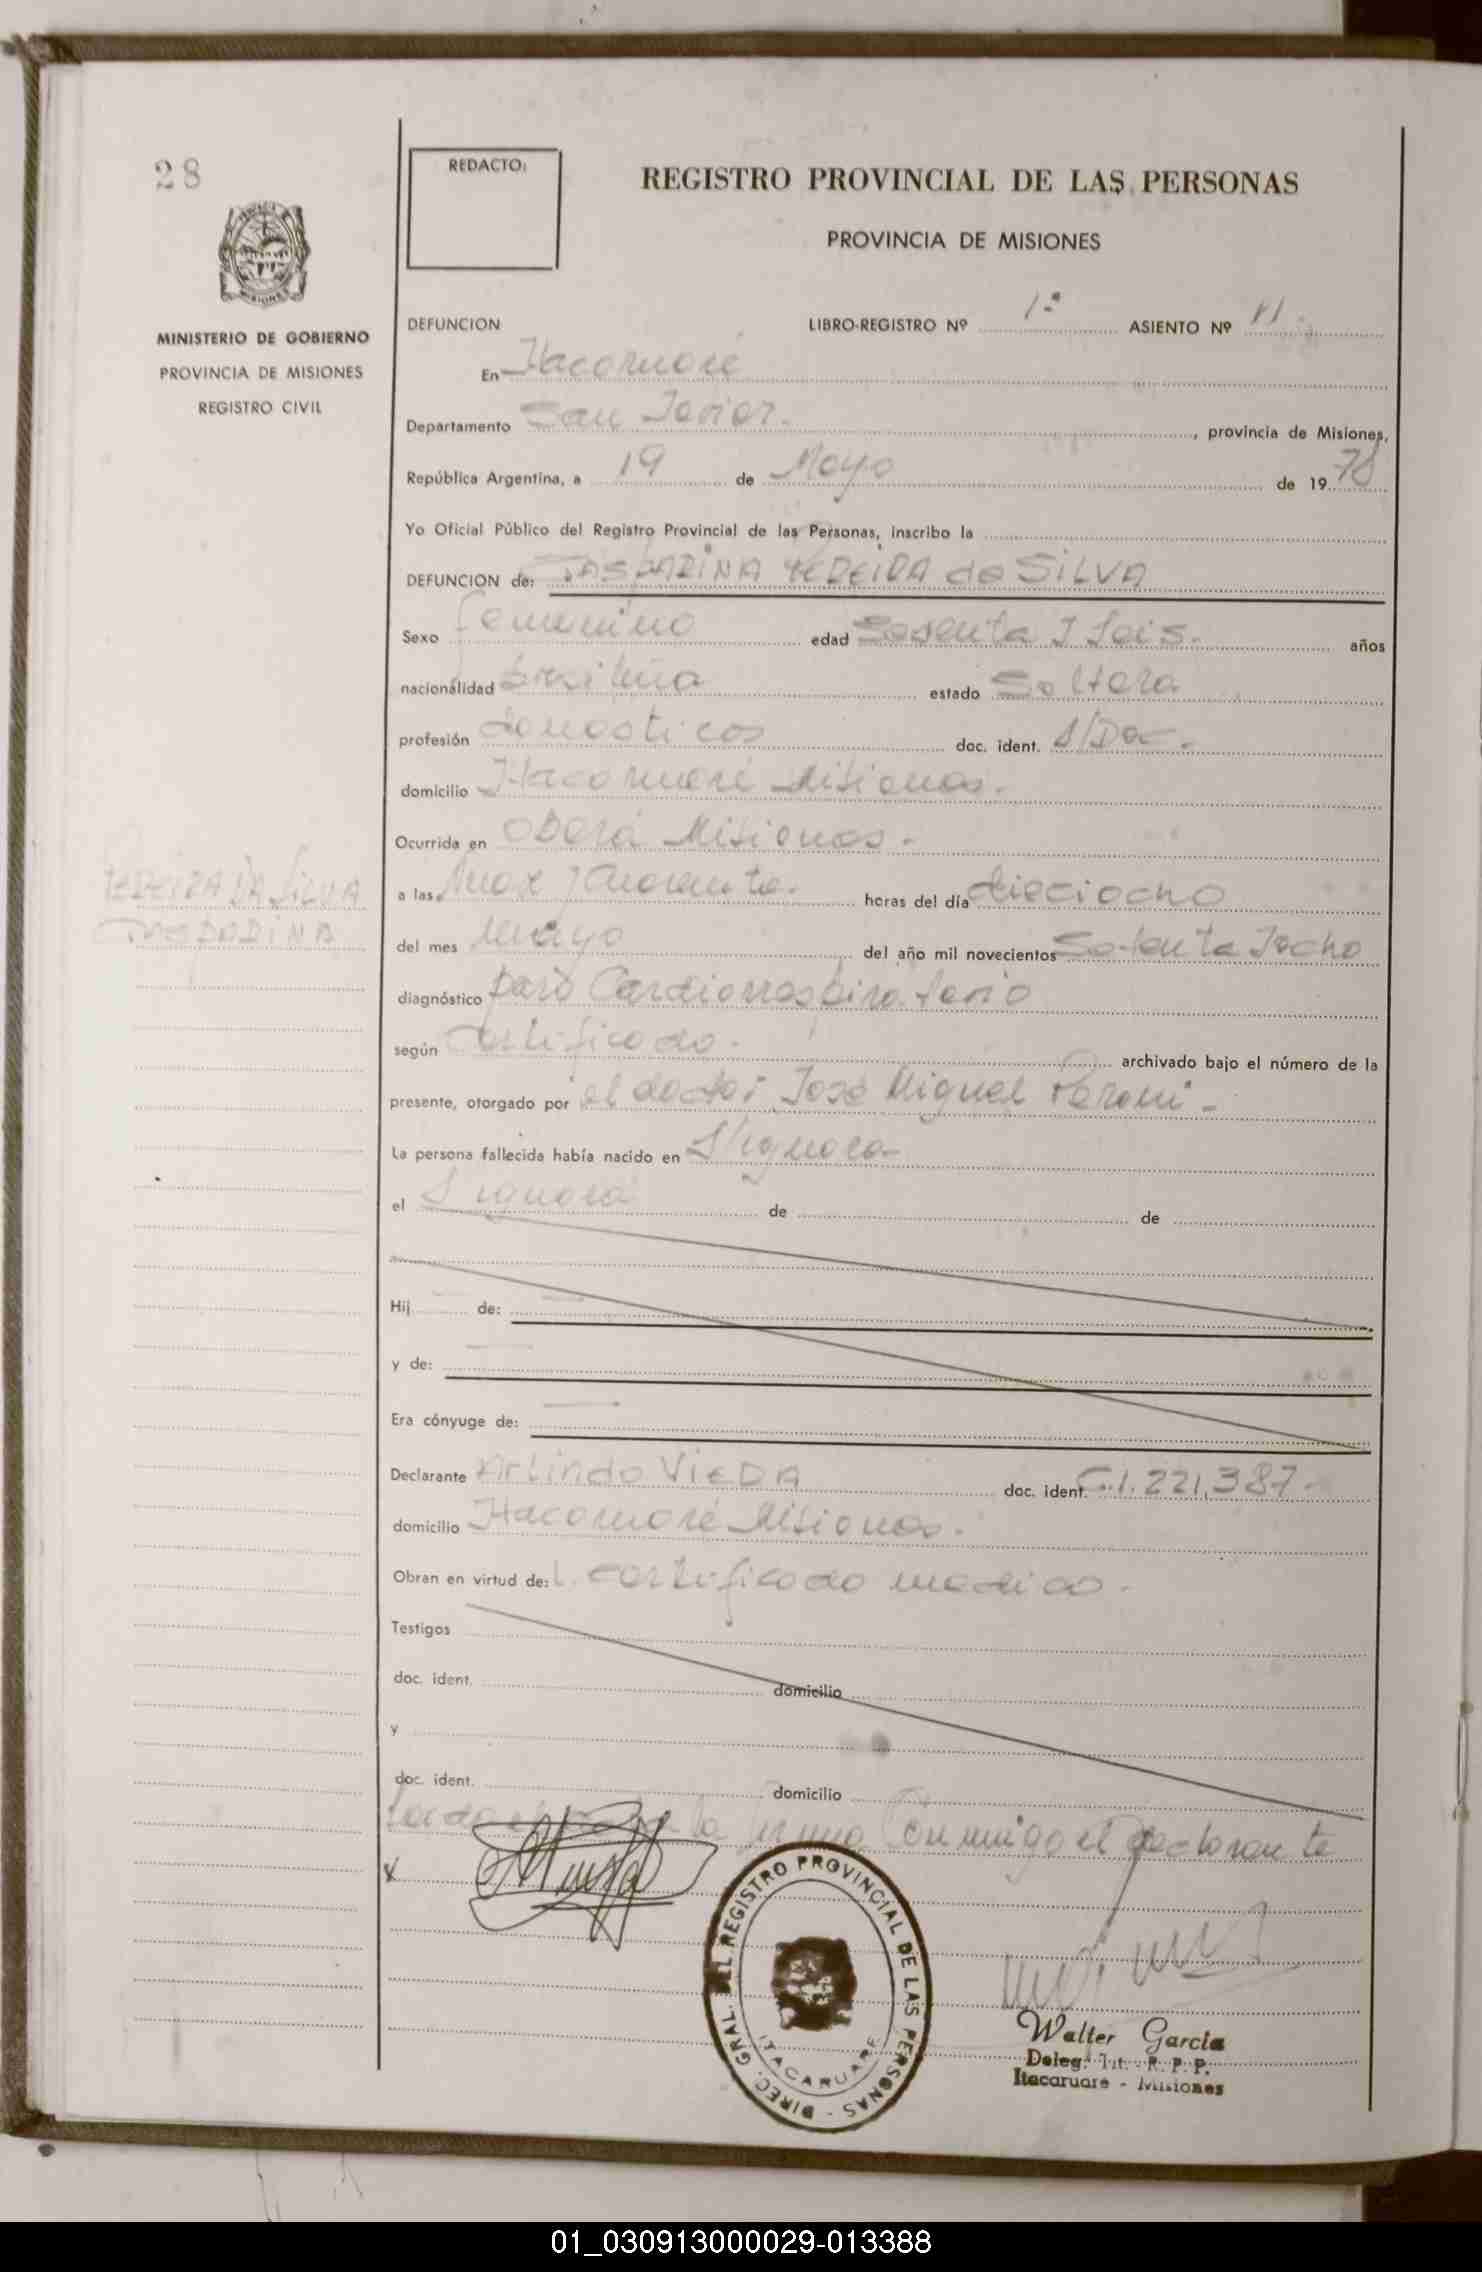 28
REDACTO:
REGISTRO PROVINCIAL DE LAS PERSONAS
PROVINCIA DE MISIONES
MISIONES
MINISTERIO DE GOBIERNO
PROVINCIA DE MISIONES
REGISTRO CIVIL
DEFUNCION LIBRO-REGISTRO Nº 1º ASIENTO Nº 11
En Itacaruaré
Departamento San Javier. , provincia de Misiones,
República Argentina, a 19 de Mayo de 1978
Yo Oficial Público del Registro Provincial de las Personas, inscribo la
DEFUNCION de: GASPARINA PEREIRA da SILVA
Sexo femenino edad Sesenta y seis. años
nacionalidad brasileña estado Soltera
profesión domesticos doc. ident. S/Doc.
domicilio Itacaruaré Misiones.
Ocurrida en Oberá Misiones.-
PEREIRA DA SILVA
GASPARINA
a las Nueve y cuarenta. horas del día dieciocho
del mes mayo del año mil novecientos Setenta y ocho
diagnóstico paro Cardiorrespiratorio
según Certificado. archivado bajo el número de la
presente, otorgado por el doctor José Miguel
La persona fallecida había nacido en S/ignora
el S/ignora de de
Hij de:
y de:
Era cónyuge de:
Declarante Arlindo VIERA doc. ident. C.I. 221.387-
domicilio Itacaruaré Misiones.
Obran en virtud de: certificado medico.
Testigos
doc. ident. domicilio
y
doc. ident. domicilio
la firma Conmigo el declarante
x
DIREC. GRAL. DEL REGISTRO PROVINCIAL DE LAS PERSONAS
ITACARUARE
Walter Garcia
Deleg. Tit. R. P. P.
Itacaruare - Misiones
01_030913000029-013388